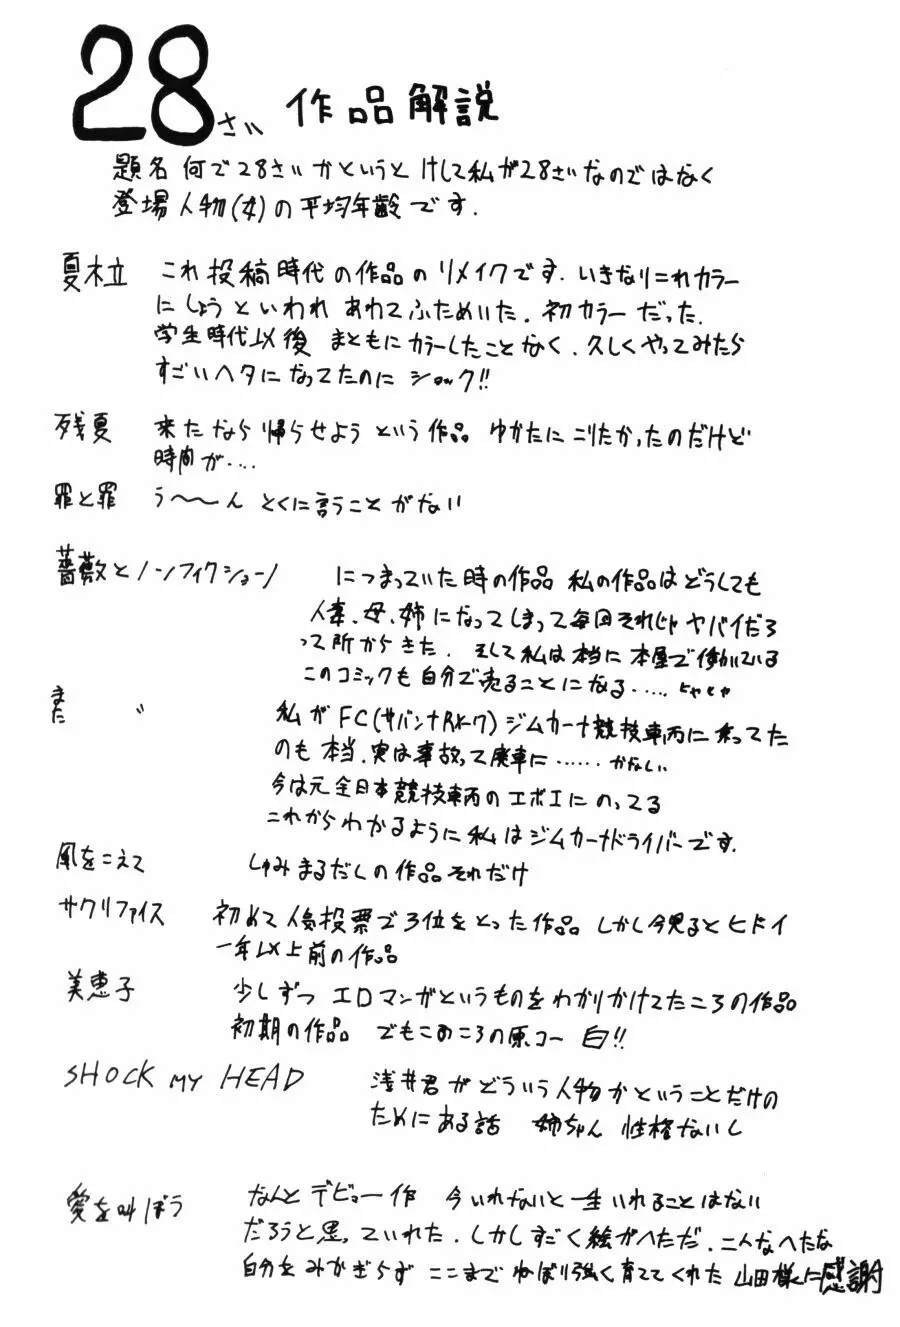 28さい 作品解説
題名 何で28さいかというと けして私が28さいなのではなく
登場人物(女)の平均年齢です.
夏木立 これ投稿時代の作品のリメイクです. いきなりこれカラー
にしようといわれ あわてふためいた. 初カラーだった.
学生時代以後 まともにカラーしたことなく. 久しくやってみたら
すごいヘタになってたのに ショック!!
残夏 来たなら帰らせよう という作品 ゆかたにこりたかったのだけど
時間が....
罪と罪 う〜〜ん とくに言うことがない
薔薇とノンフィクション につまっていた時の作品 私の作品はどうしても
人妻、母、姉になってしまって毎回それじゃヤバイだろ
って所からきた. そして私は本当に本屋で働いている
このコミックも自分で売ることになる..... ヒャヒャ
また 〃 私がFC(サバンナRX-7)ジムカーナ競技車両に乗ってた
のも本当. 実は事故って廃車に...... かなしい
今は元全日本競技車両のエボIにのってる
これからわかるように私はジムカーナドライバーです.
風をこえて しゅみまるだしの作品それだけ
サクリファイス 初めて人気投票で3位をとった作品 しかし今見るとヒドイ
一年以上前の作品
美恵子 少しずつ エロマンガというものをわかりかけてたころの作品
初期の作品 でもこのころの原コー 白!!
SHOCK MY HEAD 浅井君がどういう人物かということだけの
ためにある話 姉ちゃん 性格ないし
愛を叫ぼう なんとデビュー作 今いれないと一生いれることはない
だろうと思っていれた. しかしすごく絵がへただ. こんなへたな
自分をみかぎらず ここまでねばり強く育ててくれた 山田様に感謝